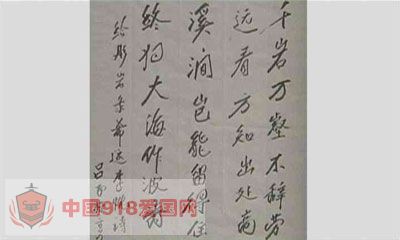 千岩万壑不辞劳
远看方知出处高
溪涧岂能留得住
终归大海作波涛
中国918爱国网